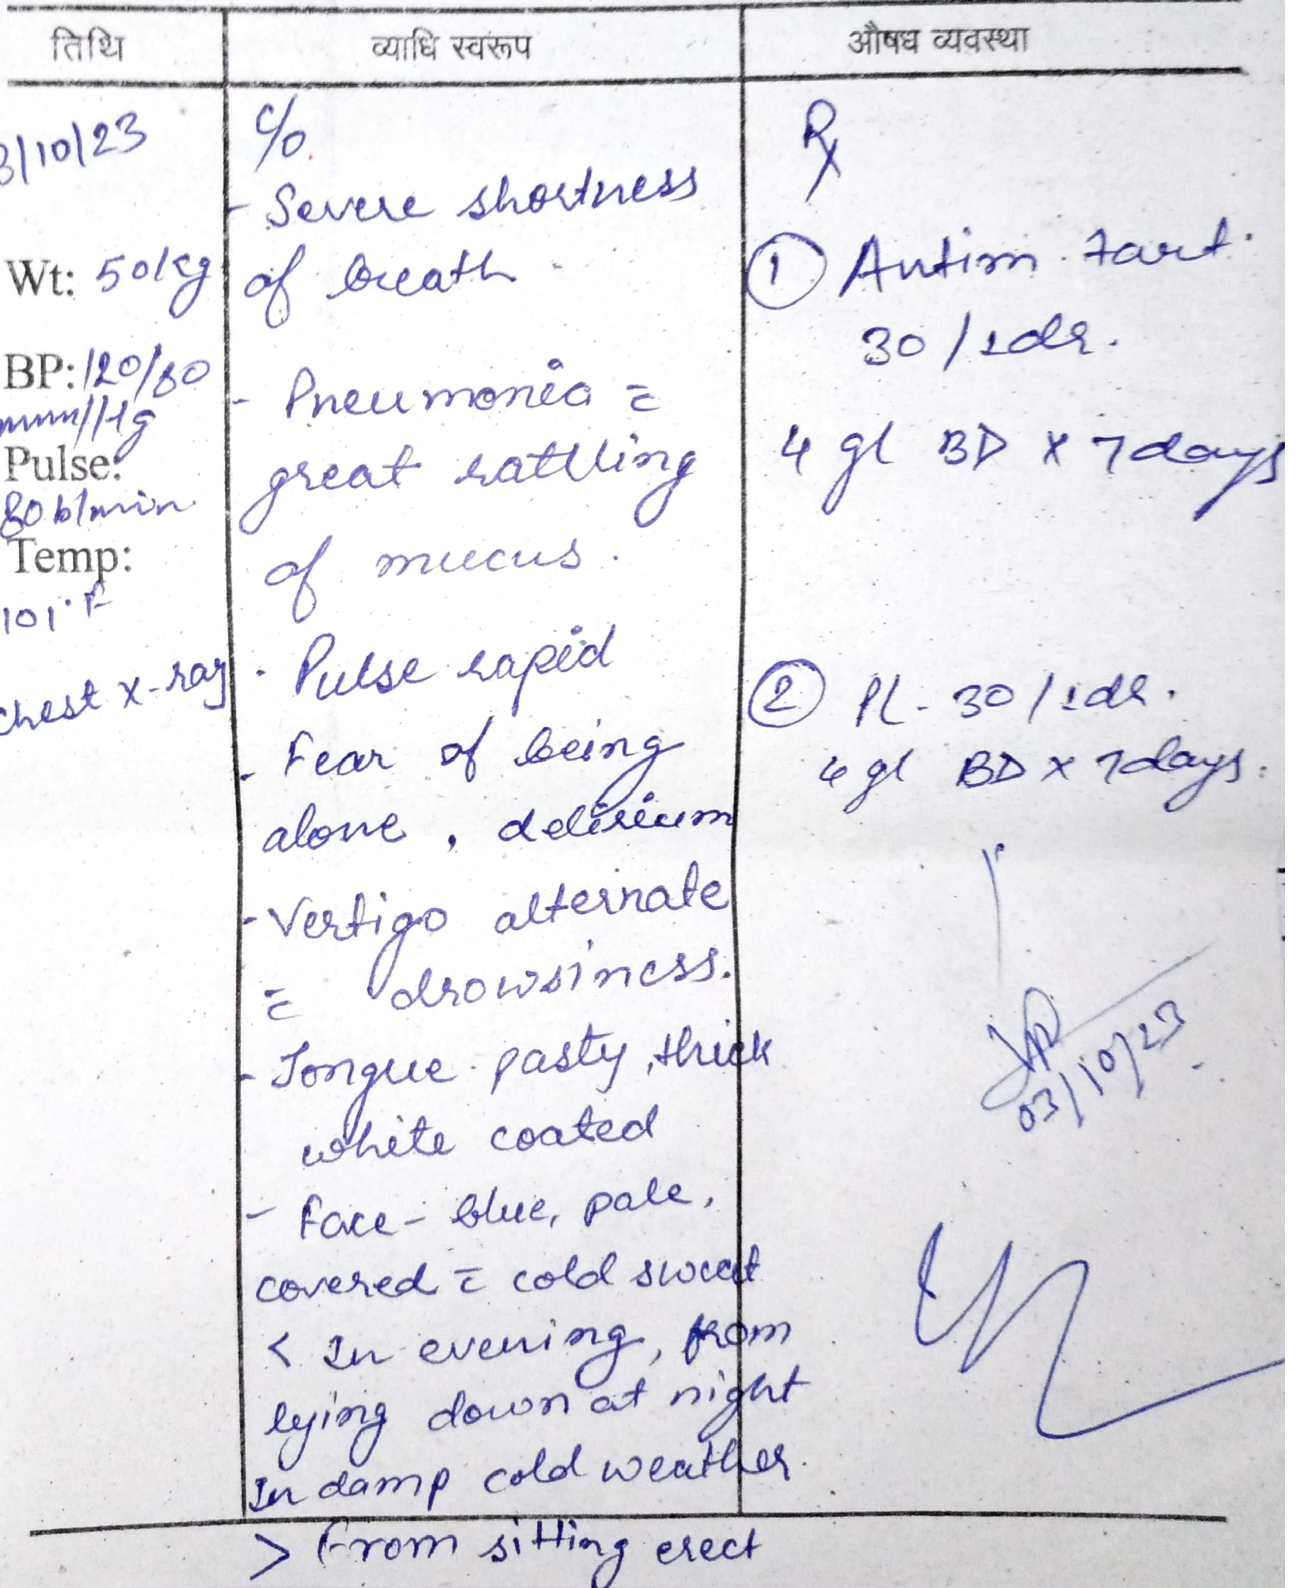 तिथि
व्याधि स्वरूप
औषध व्यवस्था
3/10/23
Wt: 50kg
BP: 120/80
mm/Hg
Pulse:
80 b/min
Temp:
101°F
chest x-ray
c/o
- Severe shortness
of breath
- Pneumonia =
great rattling
of mucus.
- Pulse rapid
- Fear of being
alone, delirium
- Vertigo alternate
= drowsiness.
- Tongue pasty, thick
white coated
- Face - blue, pale,
covered = cold sweat
< In evening, from
lying down at night
In damp cold weather.
> From sitting erect
Rx
① Antim. tart.
30/1dr.
4 gl BD x 7 days
② PL - 30/1dr.
4 gl BD x 7 days.
03/10/23